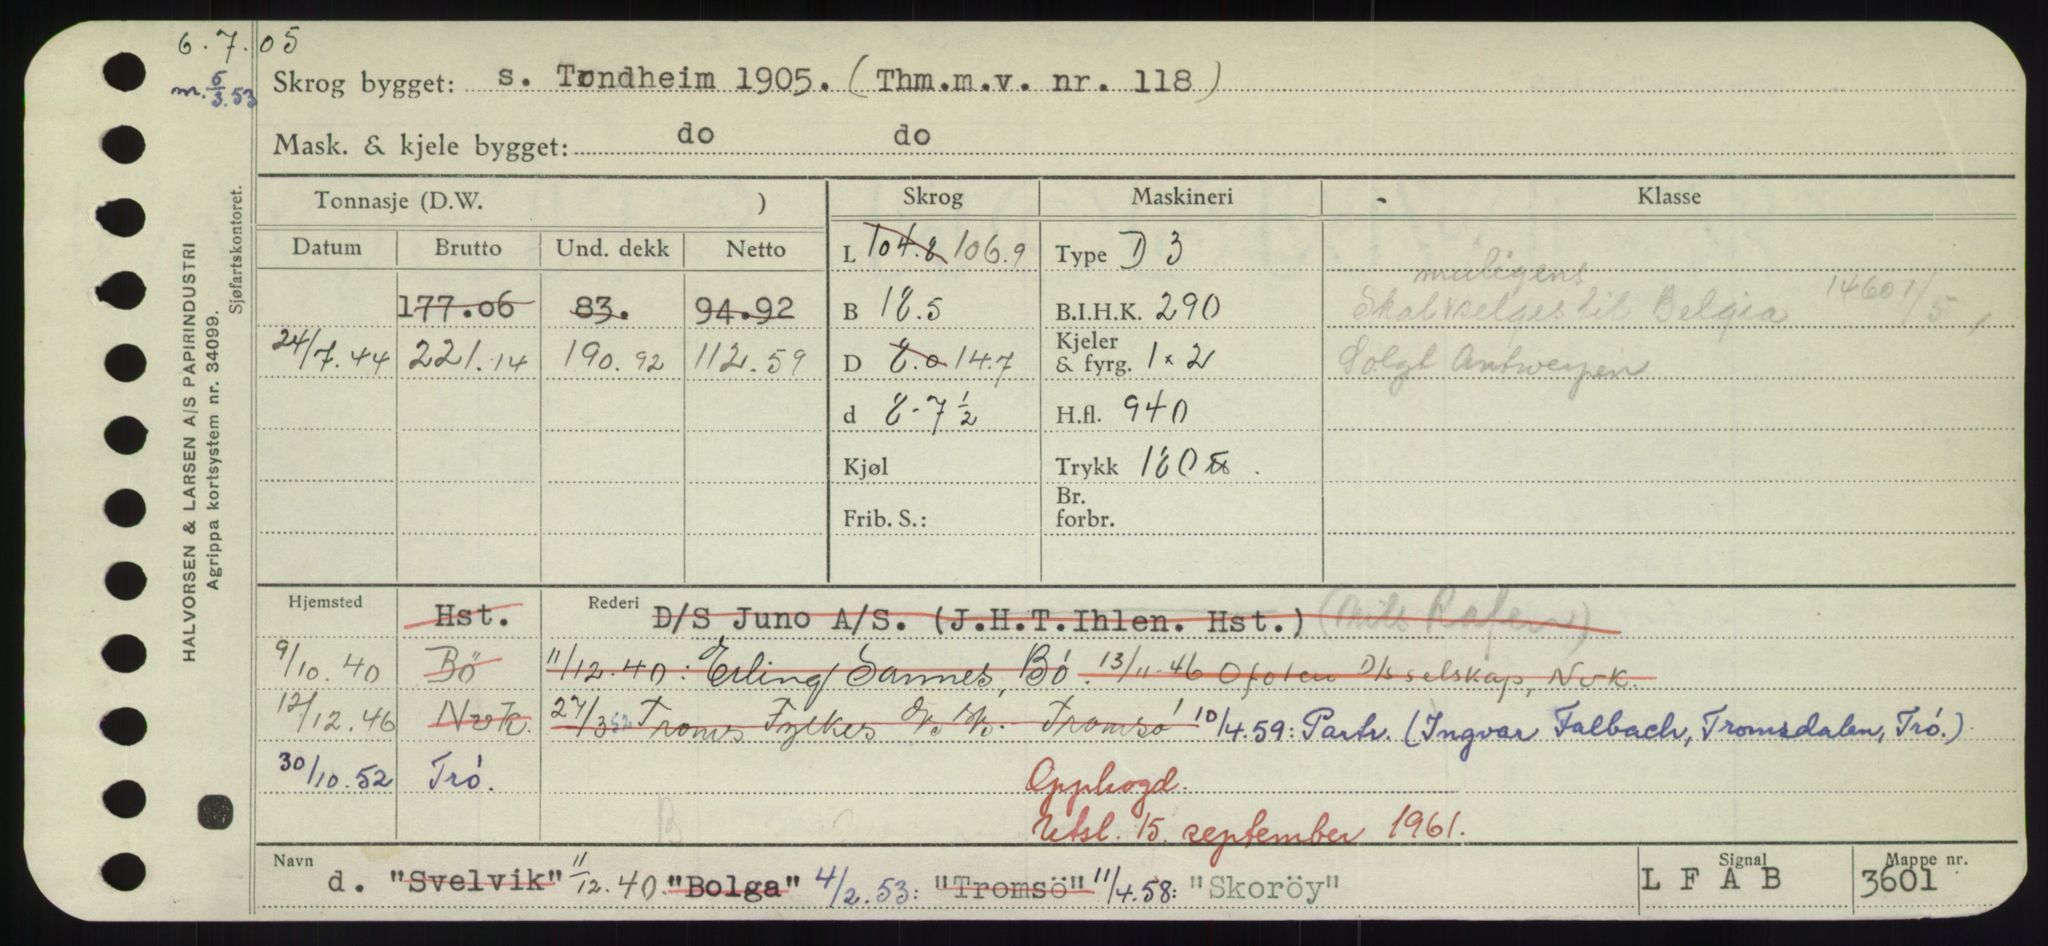 6.7.05
m. 6/3.53
Skrog bygget: s. Tondheim 1905. (Thm.m.v. nr. 118)
Mask. & kjele bygget: do do
Tonnasje (D.W. ) Skrog Maskineri Klasse
Datum Brutto Und. dekk Netto L 104.8 106.9 Type D 3
muligens
177.06 83. 94.92 B 18.5 B.I.H.K. 290 Skal selges til Belgia
24/7.44 221.14 190.92 112.59 D 8.0 14.7 Kjeler & fyrg. 1 x 2 Solgt Antwerpen
d 8-7 1/2 H.fl. 940
Kjøl Trykk 180
Frib. S.: Br. forbr.
Hjemsted Hst. Rederi D/S Juno A/S. (J.H.T.Ihlen. Hst.)
9/10.40 Bö 11/12.40: Erling Sannes, Bö. 13/11-46 Ofoten D/s selskap, Nvk.
12/12.46 Nvk. 27/3 52 Troms Fylkes D/S Tromsö 10/4.59: Partr. (Ingvar Falbach, Tromsdalen, Trö.)
30/10.52 Trö. Opphogd.
Utsl. 15. september 1961.
Navn d. "Svelvik" 11/12.40 "Bolga" 4/2.53: "Tromsö" 11/4.58: "Skoröy" Signal L F A B Mappe nr. 3601
HALVORSEN & LARSEN A/S PAPIRINDUSTRI
Agrippa kortsystem nr. 34099.
Sjøfartskontoret.